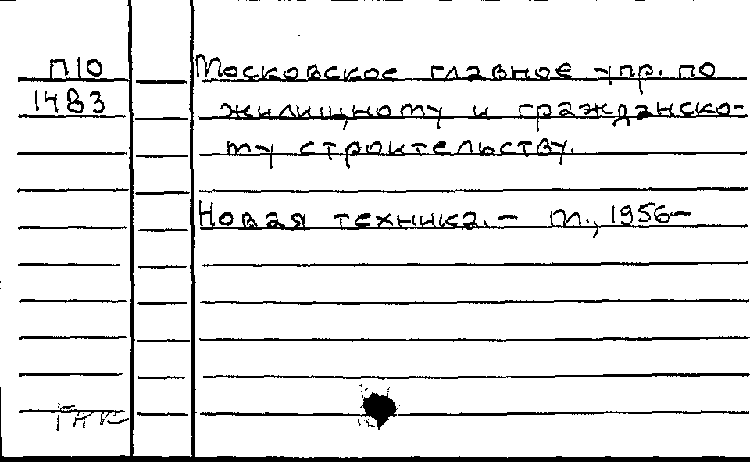 П10
1483
Московское главное упр. по
жилищному и гражданско-
му строительству.
Новая техника. – М., 1956–